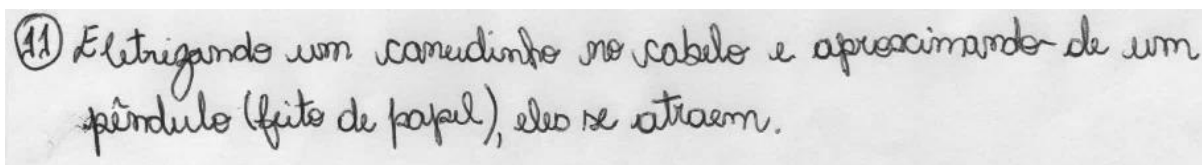 11 Eletrizando um canudinho no cabelo e aproximando de um
pêndulo (feito de papel), eles se atraem.